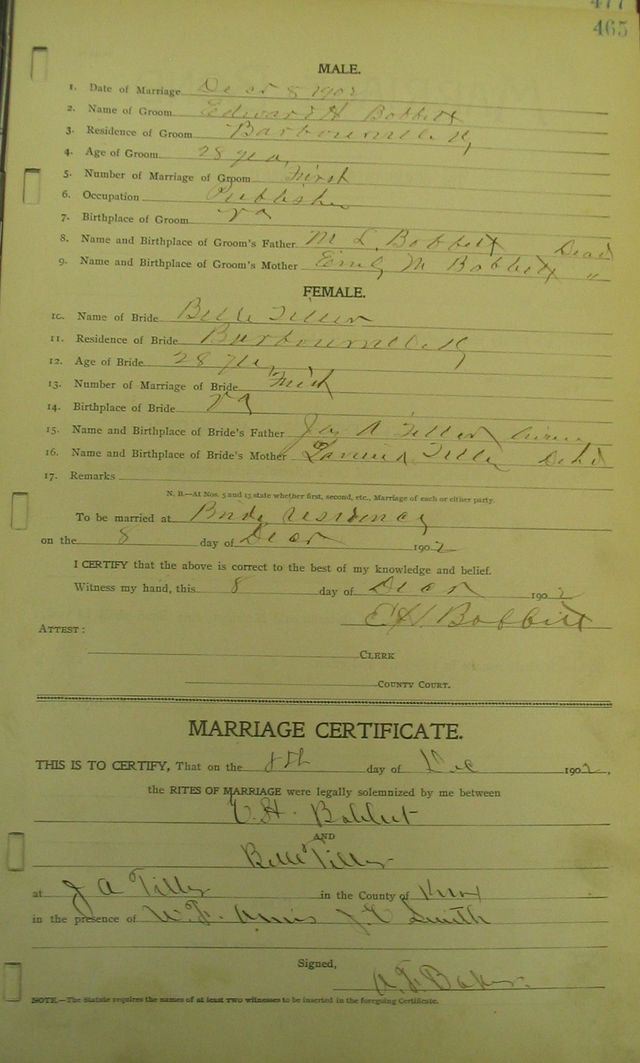 477
465
MALE.
1. Date of Marriage Decr 8 1902
2. Name of Groom Edward H Bobbitt
3. Residence of Groom Barbourville Ky
4. Age of Groom 28 yea
5. Number of Marriage of Groom First
6. Occupation Publisher
7. Birthplace of Groom Va
8. Name and Birthplace of Groom's Father M L Bobbitt Dead
9. Name and Birthplace of Groom's Mother Emily M Bobbitt "
FEMALE.
10. Name of Bride Belle
11. Residence of Bride Barbourville Ky
12. Age of Bride 28 yea
13. Number of Marriage of Bride First
14. Birthplace of Bride
15. Name and Birthplace of Bride's Father A
16. Name and Birthplace of Bride's Mother
17. Remarks
N. B.—At Nos. 5 and 13 state whether first, second, etc., Marriage of each or either party.
To be married at Brides residence
on the 8 day of Decr 1902
I CERTIFY that the above is correct to the best of my knowledge and belief.
Witness my hand, this 8 day of Decr 1902
E H. Bobbitt
ATTEST:
CLERK
COUNTY COURT.
MARRIAGE CERTIFICATE.
THIS IS TO CERTIFY, That on the 8th day of Dec 1902,
the RITES OF MARRIAGE were legally solemnized by me between
E. H. Bobbitt
AND
Belle Tilley
at J A Tilley in the County of Knox
in the presence of W. F. Amis J. E. Smith
Signed,
Baker.
NOTE.—The Statute requires the names of at least TWO witnesses to be inserted in the foregoing Certificate.